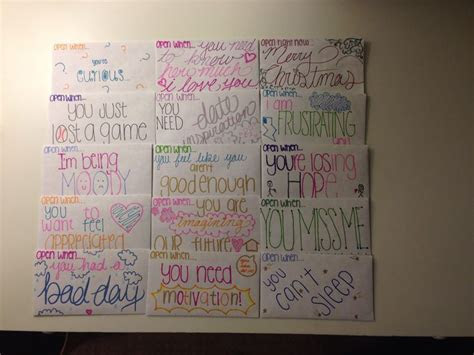 OPEN WHEN...
you're
CURIOUS...
OPEN WHEN...
you need
to know
how much
i love you
OPEN RIGHT NOW
Merry
Christmas
OPEN WHEN...
you just
lost a game
OPEN WHEN...
YOU
NEED
date
inspiration
OPEN WHEN...
I am
FRUSTRATING
OPEN WHEN...
I'm being
MOODY
OPEN WHEN...
you feel like you
aren't
good enough
OPEN WHEN...
you're losing
HOPE
OPEN WHEN...
you
want to feel
appreciated
OPEN WHEN...
you are
imagining
OUR future
OPEN WHEN...
YOU MISS ME
OPEN WHEN...
you had a
bad day
OPEN WHEN...
you need
motivation!
OPEN WHEN...
you
can't
SLEEP